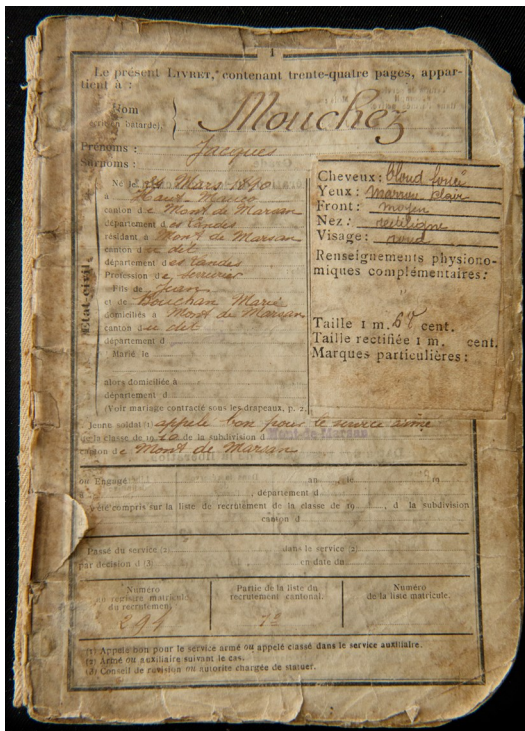 1
Le présent LIVRET, contenant trente-quatre pages, appar-
tient à :
Nom
(écrit en batarde)
Mouchez
Prénoms : Jacques
Surnoms :
Né le 24 Mars 1890
à Haut Mauco
canton de Mont de Marsan
département des Landes
résidant à Mont de Marsan
canton du dit
département des Landes
Profession de serrurier
Fils de Jean
et de Bouchan Marie
domiciliés à Mont de Marsan
canton du dit
département d
Marié le
alors domiciliée à
département d
(Voir mariage contracté sous les drapeaux, p. 2.
État-civil
Cheveux : blond foncé
Yeux : marron clair
Front : moyen
Nez : rectiligne
Visage : rond
Renseignements physiono-
miques complémentaires :
Taille 1 m. cent.
Taille rectifiée 1 m. cent.
Marques particulières :
Jeune soldat (1) appelé bon pour le service armé
de la classe de 1910 de la subdivision d Mont-de-Marsan
canton de Mont de Marsan
ou Engagé an le 19
, département d
a été compris sur la liste de recrutement de la classe de 19 , d la subdivision
canton d
Passé du service (2) dans le service (2)
par décision d (3) en date du
Numéro
au registre matricule
du recrutement.
394
Partie de la liste du
recrutement cantonal.
Numéro
de la liste matricule.
(1) Appelé bon pour le service armé ou appelé classé dans le service auxiliaire.
(2) Armé ou auxiliaire suivant le cas.
(3) Conseil de révision ou autorité chargée de statuer.